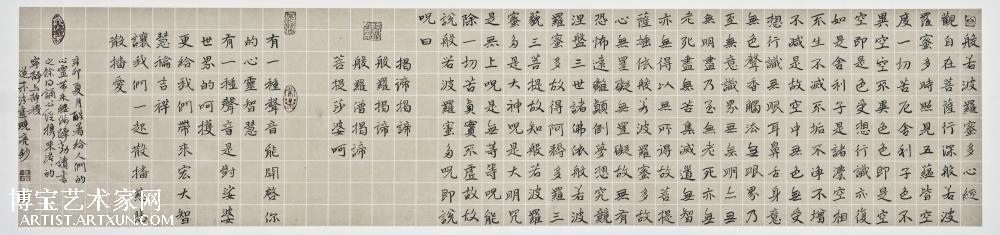 般若波羅蜜多心經
觀自在菩薩行深般若波
羅蜜多時照見五蘊皆空
度一切苦厄舍利子色不
異空空不異色色即是空
空即是色受想行識亦復
如是舍利子是諸法空相
不生不滅不垢不淨不增
不減是故空中無色無受
想行識無眼耳鼻舌身意
無色聲香味觸法無眼界乃
至無意識界無無明亦
無無明盡乃至無老死亦無
老死盡無苦集滅道無智
亦無得以無所得故菩提
薩埵依般若波羅蜜多故
心無罣礙無罣礙故無有
恐怖遠離顛倒夢想究竟
涅盤三世諸佛依般若波
羅蜜多故得阿耨多羅三
藐三菩提故知般若波羅
蜜多是大神咒是大明咒
是無上咒是無等等咒能
除一切苦真實不虛故
說般若波羅蜜多咒即說
咒曰
揭諦揭諦
般羅揭諦
般羅僧揭諦
菩提莎婆呵
有一種聲音能開啓你
的心靈智慧
有一種聲音是對娑婆
世界的呵護
更給我們帶來宏大智
慧福吉祥
讓我們一起散播
散播愛
辛卯夏月酷暑給人們的
心靈帶來
之餘
博宝艺术家网
ARTIST.ARTXUN.COM